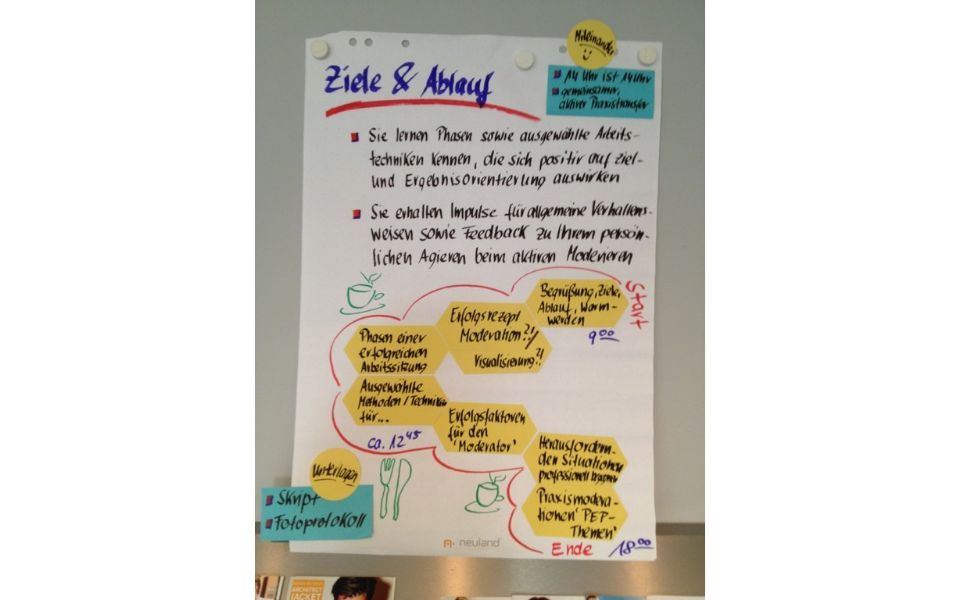 Miteinander
14 Uhr ist 14 Uhr
gemeinsamer,
aktiver Praxistransfer
Ziele & Ablauf
Sie lernen Phasen sowie ausgewählte Arbeits-
techniken kennen, die sich positiv auf Ziel-
und Ergebnisorientierung auswirken
Sie erhalten Impulse für allgemeine Verhaltens-
weisen sowie Feedback zu Ihrem persön-
lichen Agieren beim aktiven Moderieren
Start
Begrüßung, Ziele,
Ablauf, Warm-
werden
9 00
Erfolgsrezept
Moderation?!
Visualisierung?!
Phasen einer
erfolgreichen
Arbeitssitzung
Ausgewählte
Methoden/Techniken
für...
ca. 12 45
Erfolgsfaktoren
für den
"Moderator"
Herausfordern-
den Situationen
professionell
Praxismodera-
tionen "PEP-
Themen"
Ende 18 00
Unterlagen
Skript
Fotoprotokoll
neuland
ARCHITECT
JACKET